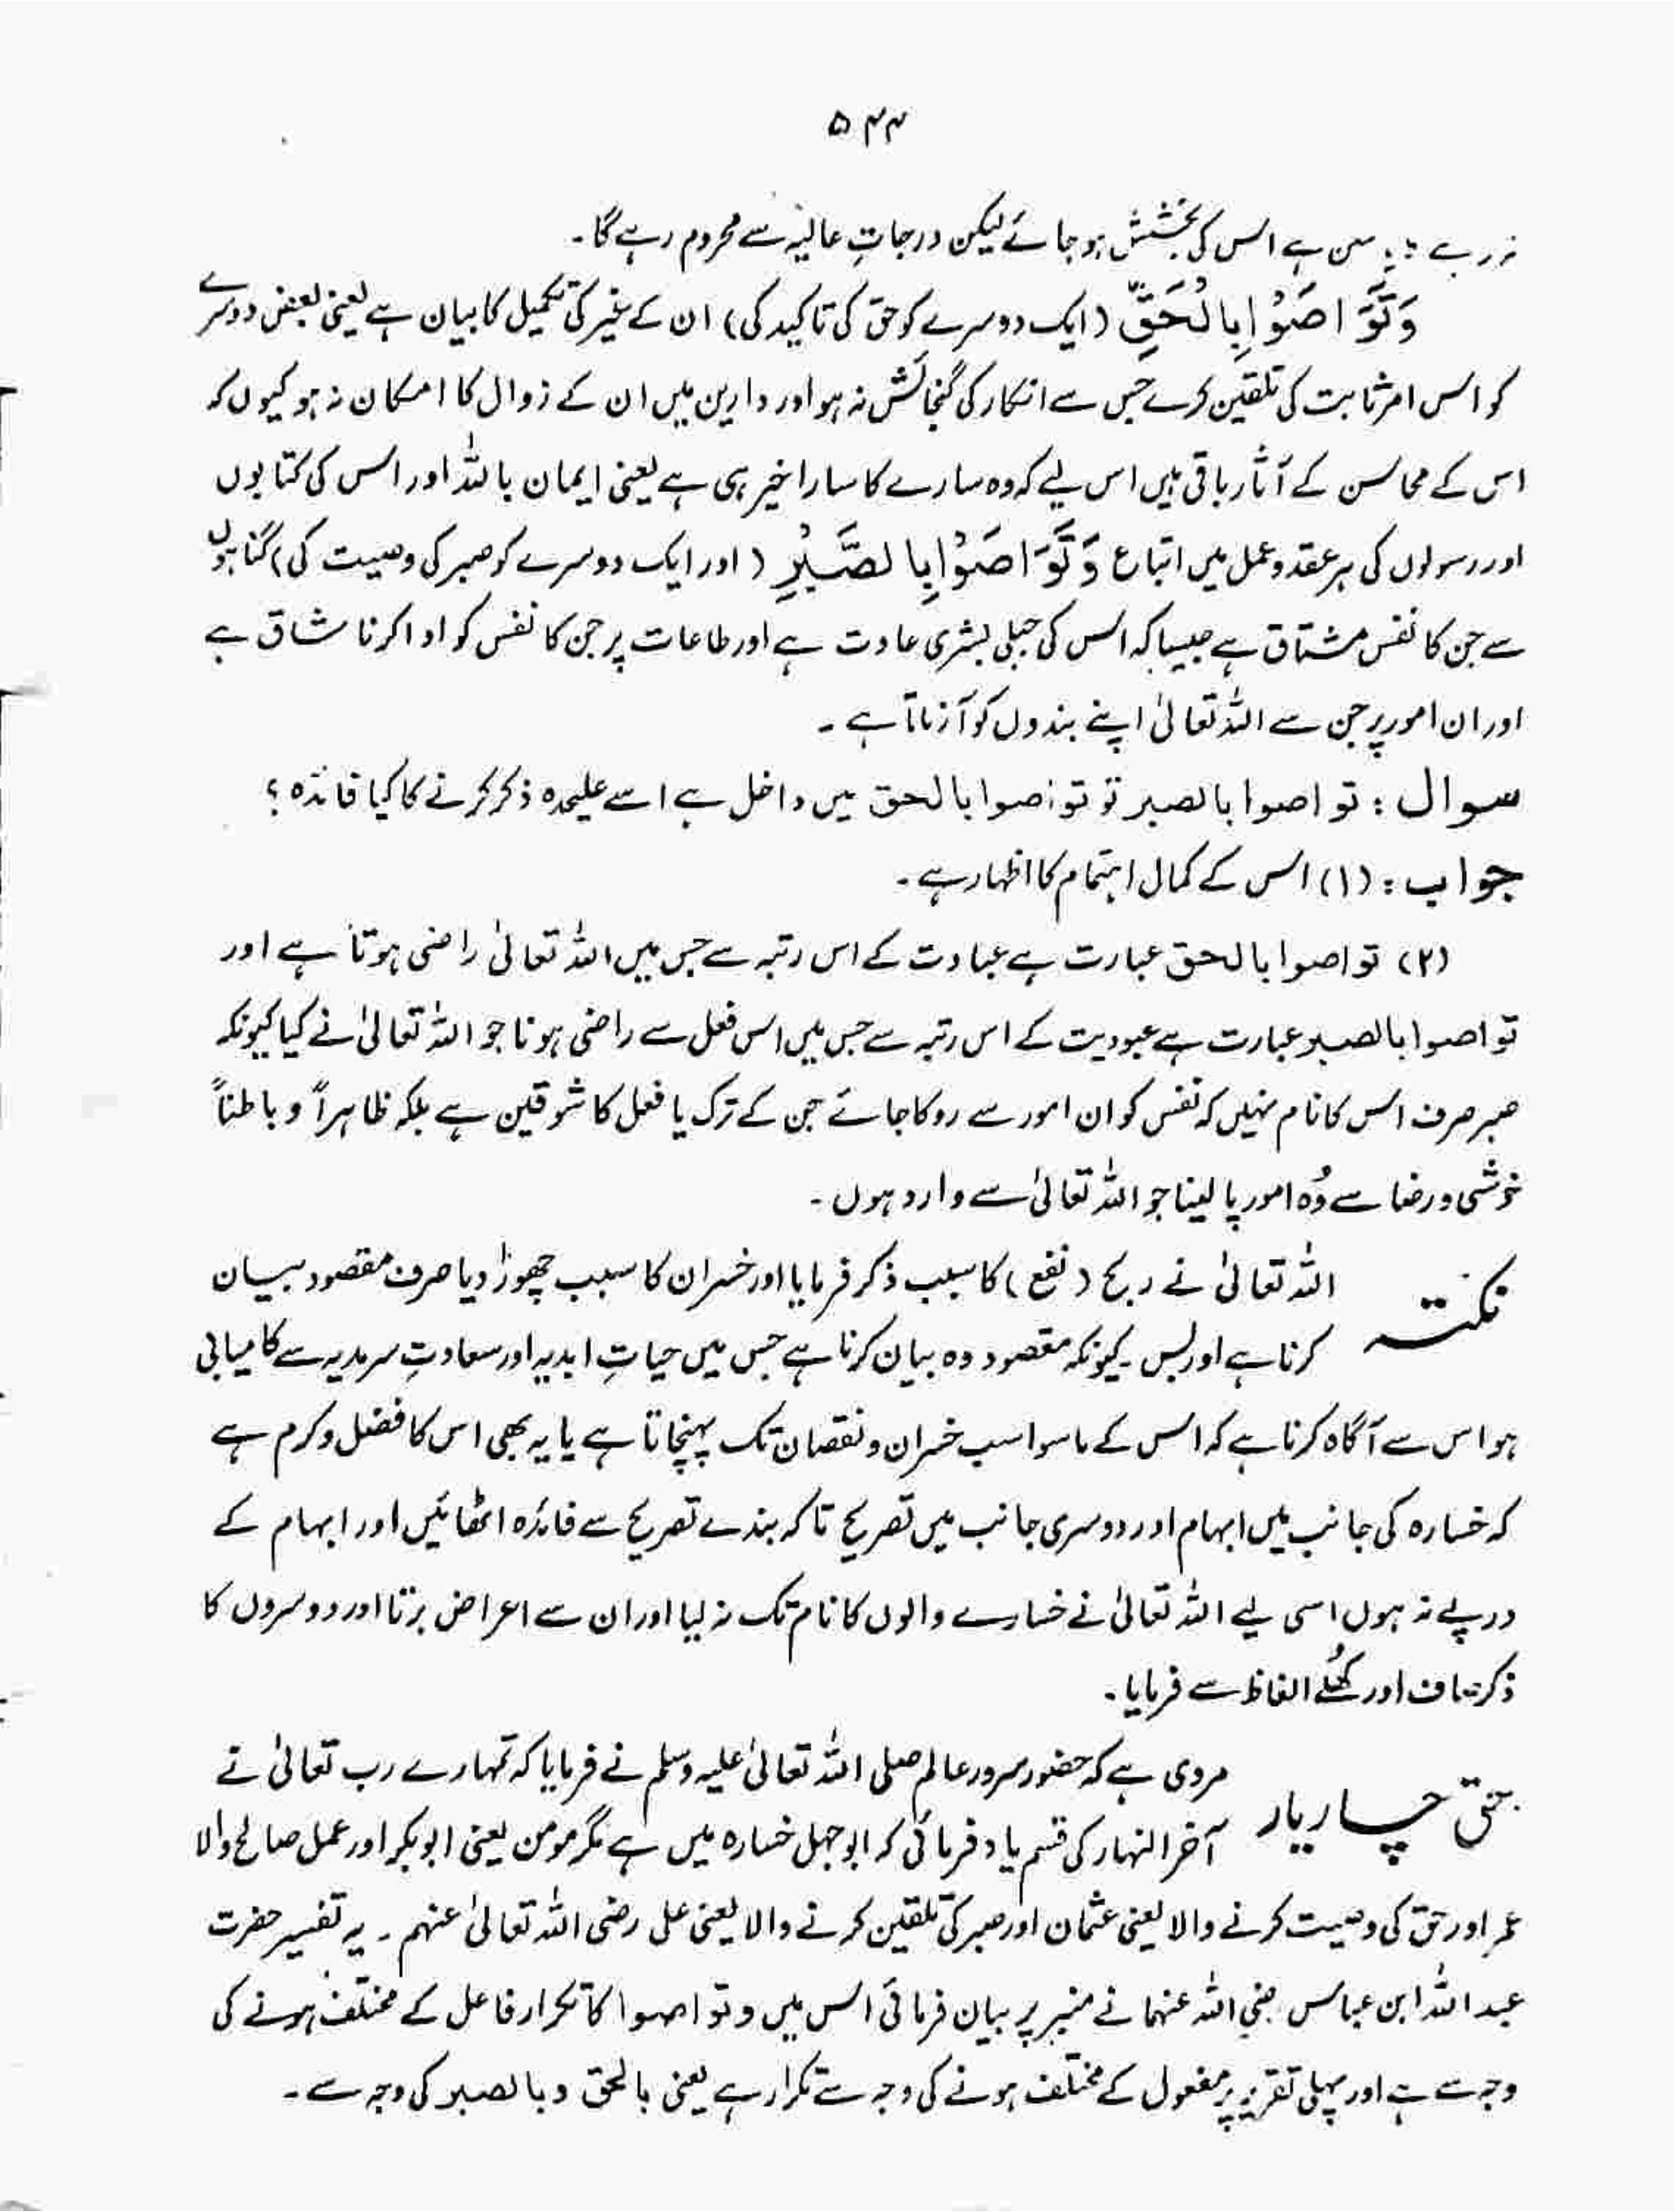 ۵۴۴
ہے اس کی بخشش ہو جائے لیکن درجاتِ عالیہ سے محروم رہے گا۔
وَتَوَاصَوْا بِالْحَقِّ (ایک دوسرے کو حق کی تاکید کی) ان کے غیر کی تکمیل کا بیان ہے یعنی بعض دوسرے
کو اس امر ثابت کی تلقین کرے جس سے انکار کی گنجائش نہ ہو اور دارین میں ان کے زوال کا امکان نہ ہو کیوں کہ
اس کے محاسن کے آثار باقی ہیں اس لیے کہ وہ سارے کا سارا خیر ہی ہے یعنی ایمان باللہ اور اس کی کتابوں
اور رسولوں کی ہر عقد و عمل میں اتباع وَتَوَاصَوْا بِالصَّبْرِ (اور ایک دوسرے کو صبر کی وصیت کی) گناہوں
سے جن کا نفس مشتاق ہے جیسا کہ اس کی جبلی بشری عادت ہے اور طاعات پر جن کا نفس کو ادا کرنا شاق ہے
اور ان امور پر جن سے اللہ تعالیٰ اپنے بندوں کو آزماتا ہے۔
سوال: تواصوا بالصبر تو تواصوا بالحق میں داخل ہے اسے علیحدہ ذکر کرنے کا کیا فائدہ؟
جواب: (۱) اس کے کمال اہتمام کا اظہار ہے۔
(۲) تواصوا بالحق عبارت ہے عبادت کے اس رتبہ سے جس میں اللہ تعالیٰ راضی ہوتا ہے اور
تواصوا بالصبر عبارت ہے عبودیت کے اس رتبہ سے جس میں اس فعل سے راضی ہونا جو اللہ تعالیٰ نے کیا کیونکہ
صبر صرف اس کا نام نہیں کہ نفس کو ان امور سے روکا جائے جن کے ترک یا فعل کا شوقین ہے بلکہ ظاہراً و باطناً
خوشی و رضا سے وُہ امور پا لینا جو اللہ تعالیٰ سے وارد ہوں۔
نکتہ اللہ تعالیٰ نے ربح (نفع) کا سبب ذکر فرمایا اور خسران کا سبب چھوڑ دیا صرف مقصود بیان
کرنا ہے اور بس۔ کیونکہ مقصود وہ بیان کرنا ہے جس میں حیاتِ ابدیہ اور سعادتِ سرمدیہ سے کامیابی
ہو اس سے آگاہ کرنا ہے کہ اس کے ماسوا سب خسران و نقصان تک پہنچاتا ہے یا یہ بھی اس کا فضل و کرم ہے
کہ خسارہ کی جانب میں ابہام اور دوسری جانب میں تصریح تاکہ بندے تصریح سے فائدہ اٹھائیں اور ابہام کے
درپے نہ ہوں اسی لیے اللہ تعالیٰ نے خسارے والوں کا نام تک نہ لیا اور ان سے اعراض برتا اور دوسروں کا
ذکر صاف اور کُھلے الفاظ سے فرمایا۔
بحق چار یار مروی ہے کہ حضور سرور عالم صلی اللہ تعالیٰ علیہ وسلم نے فرمایا کہ تمہارے رب تعالیٰ نے
آخر النہار کی قسم یاد فرمائی کہ ابوجہل خسارہ میں ہے مگر مومن یعنی ابوبکر اور عمل صالح والا
عمر اور حق کی وصیت کرنے والا یعنی عثمان اور صبر کی تلقین کرنے والا یعنی علی رضی اللہ تعالیٰ عنہم۔ یہ تفسیر حضرت
عبد اللہ ابن عباس رضی اللہ عنہما نے منبر پر بیان فرمائی اس میں وتواصوا کا تکرار فاعل کے مختلف ہونے کی
وجہ سے ہے اور پہلی تقریر پر مفعول کے مختلف ہونے کی وجہ سے تکرار ہے یعنی بالحق و بالصبر کی وجہ سے۔